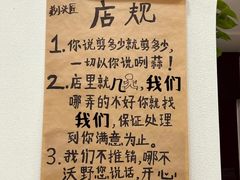 剃头匠
店规
1. 你说剪多少就剪多少,
一切以你说咧蒜!
2. 店里就几 我们
哪弄的不好你就找
我们, 保证处理
到你满意为止。
3. 我们不推销, 哪不
沃野您说话, 开心